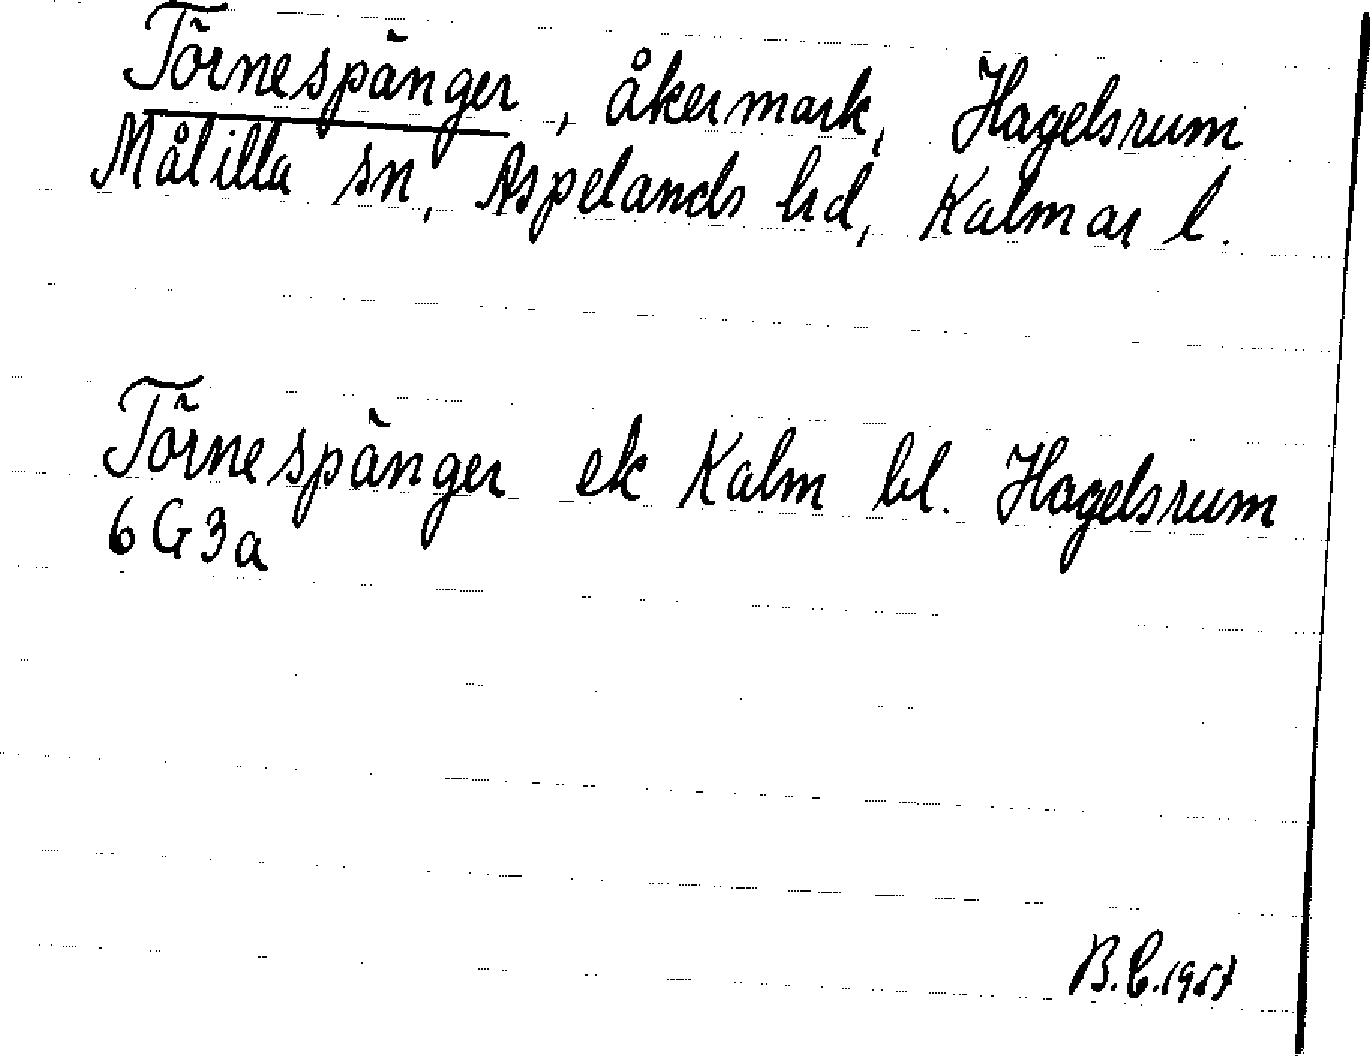 Törnespänger, åkermark, Hagelsrum
Målilla sn, Aspelands hd, Kalmar l.
Törnespänger ek Kalm bl. Hagelsrum
6G3a
B.C. 1957